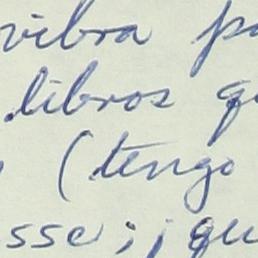 vibra pa
libros qu
(tengo
sse; ¡qu